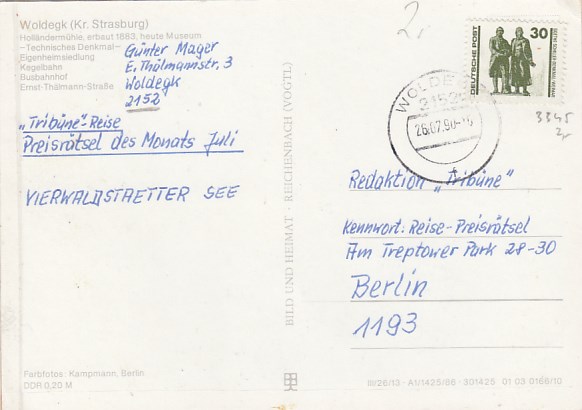 Woldegk (Kr. Strasburg)
Holländermühle, erbaut 1883, heute Museum
—Technisches Denkmal—
Eigenheimsiedlung
Kegelbahn
Busbahnhof
Ernst-Thälmann-Straße
Günter Mager
E. Thälmannstr. 3
Woldegk
2152
„Tribüne"-Reise
Preisrätsel des Monats Juli
VIERWALDSTAETTER SEE
Farbfotos: Kampmann, Berlin
DDR 0,20 M
BILD UND HEIMAT · REICHENBACH (VOGTL)
DEUTSCHE POST
30
WOLDEGK
2152
26.07.90
3345
Redaktion „Tribüne"
Kennwort: Reise-Preisrätsel
Am Treptower Park 28-30
Berlin
1193
III/26/13 · A1/1425/86 · 301425 01 03 0168/10